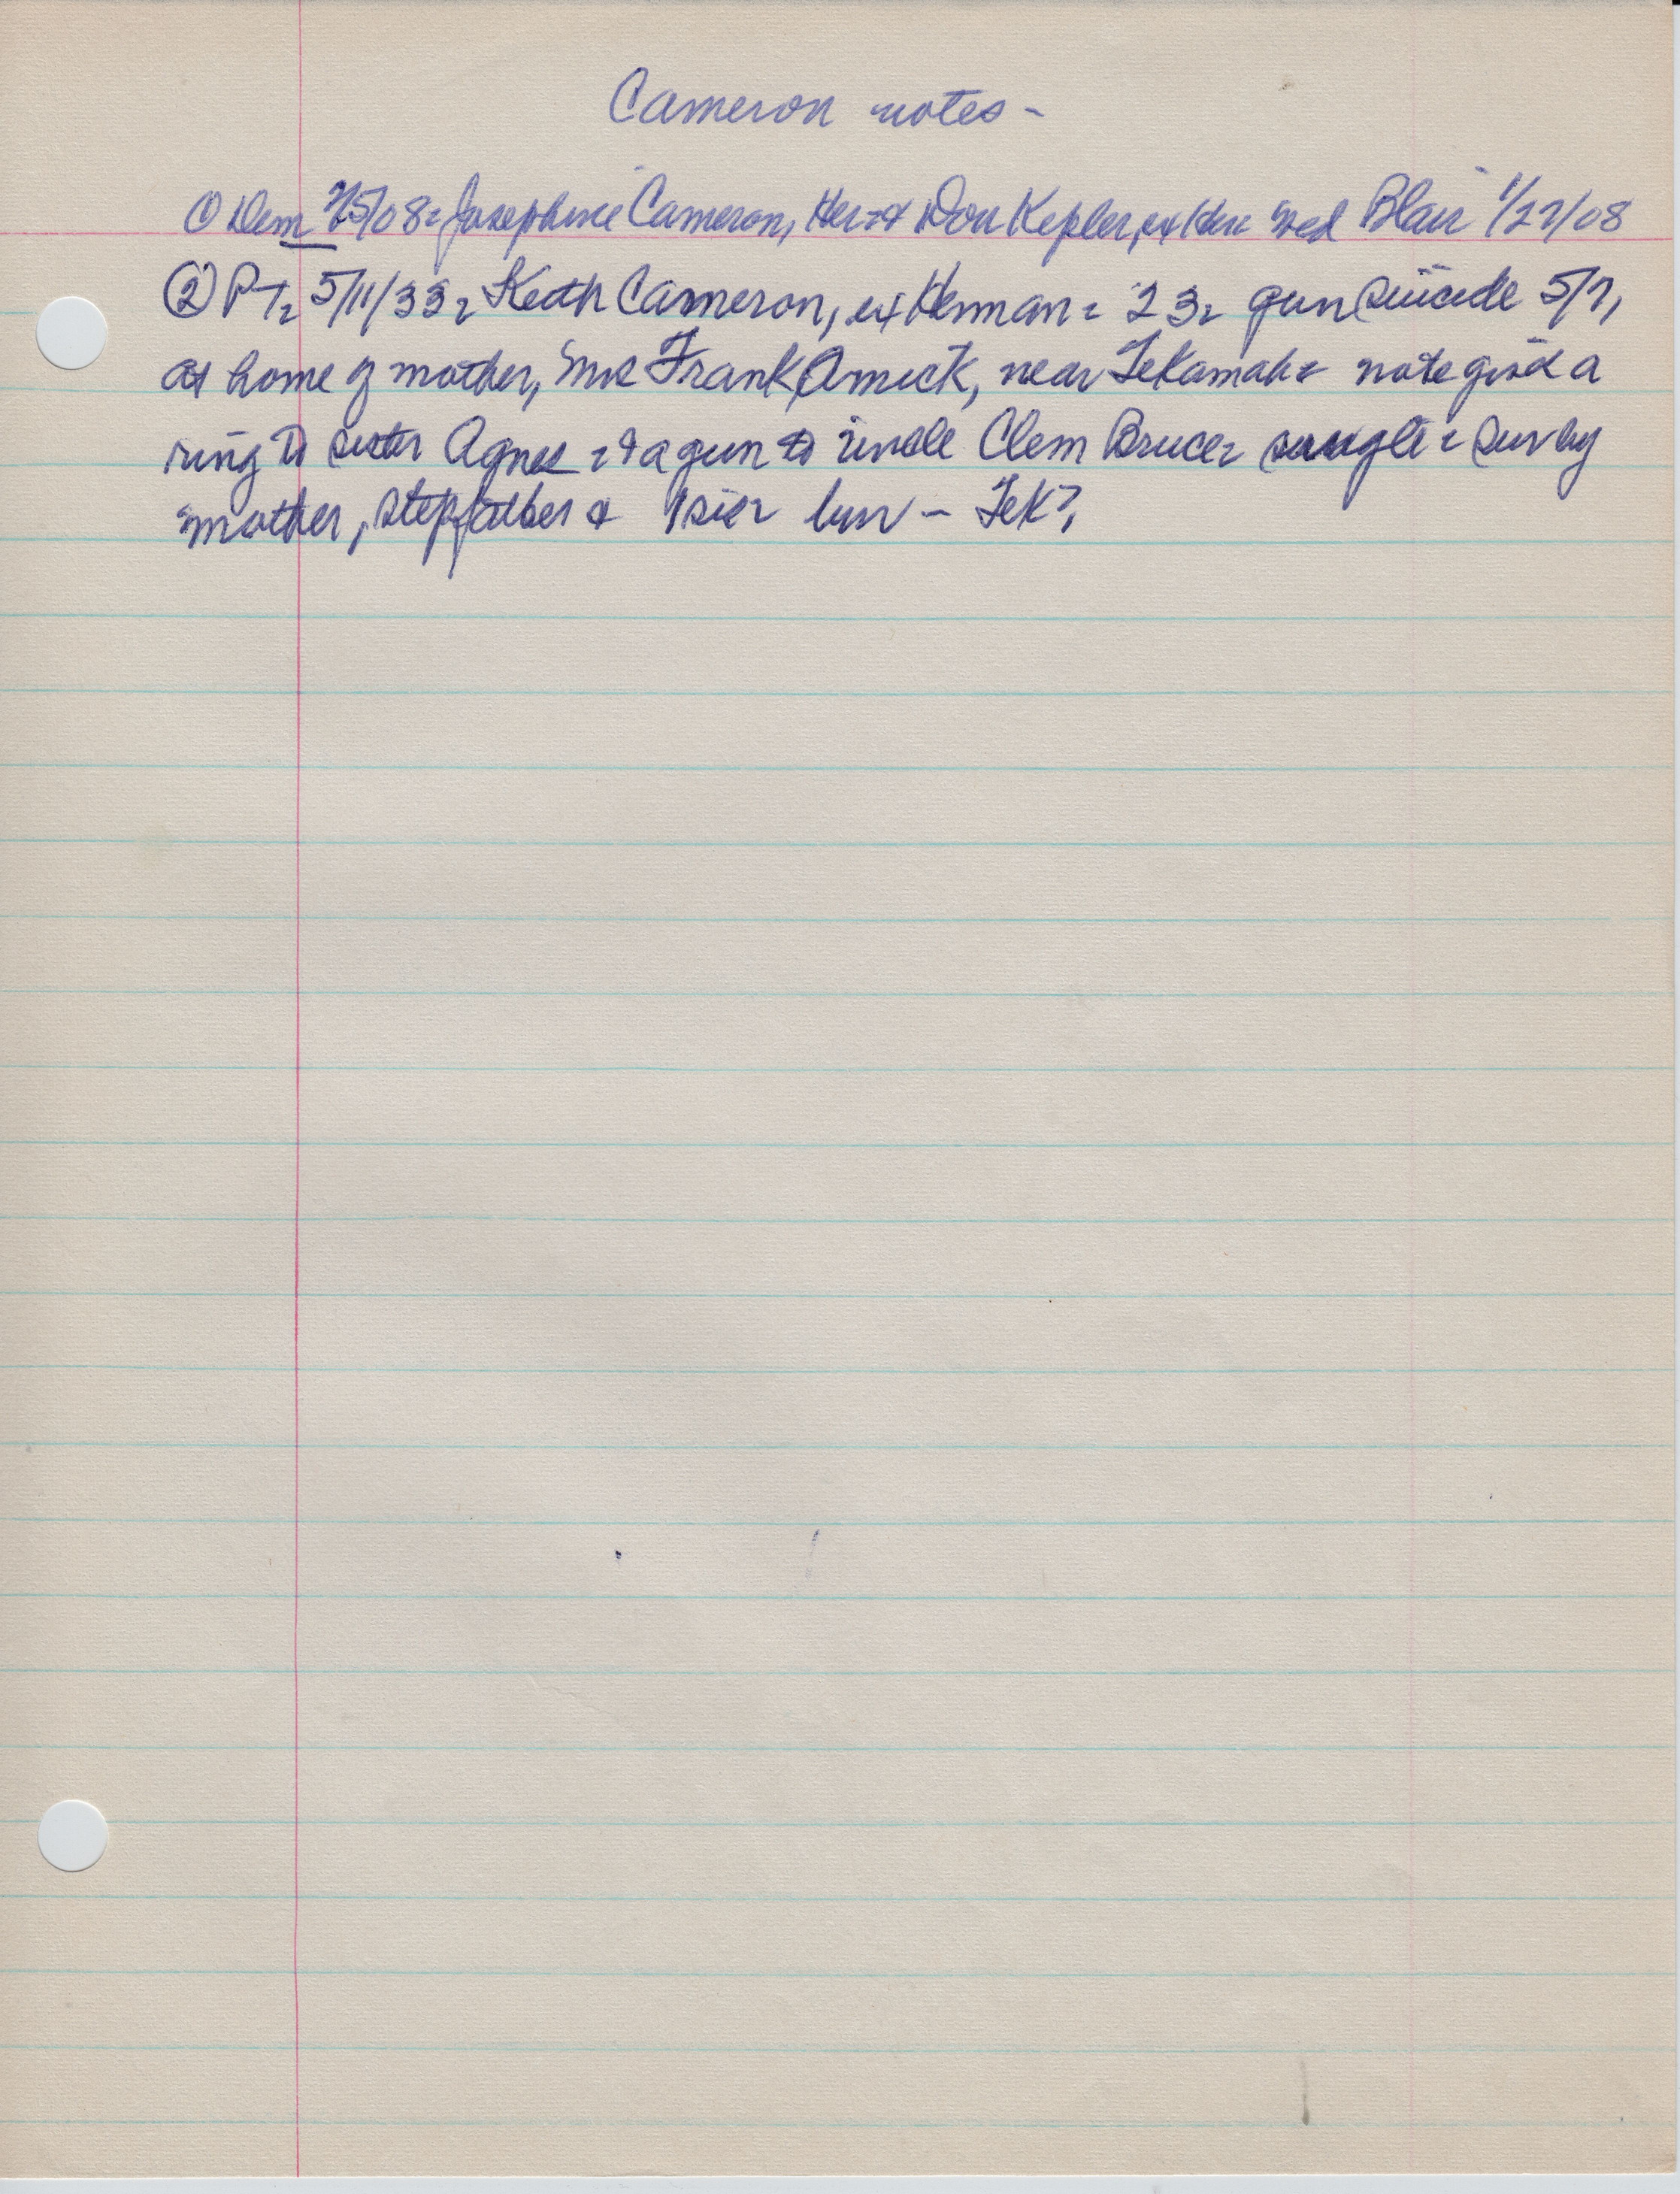 Cameron notes -
① Dem 2/5/08 = Josephine Cameron, Her = & Don Kepler, ex Her wed Blair 1/22/08
② PT = 5/11/33 = Keith Cameron, ex Herman = 23 = gun suicide 5/7,
at home of mother, Mrs Frank Amick, near Tekamah = note giv'd a
ring to sister Agnes = & a gun to uncle Clem Bruce = single = sur by
mother, stepfather & 1 sis = bur - Tek?